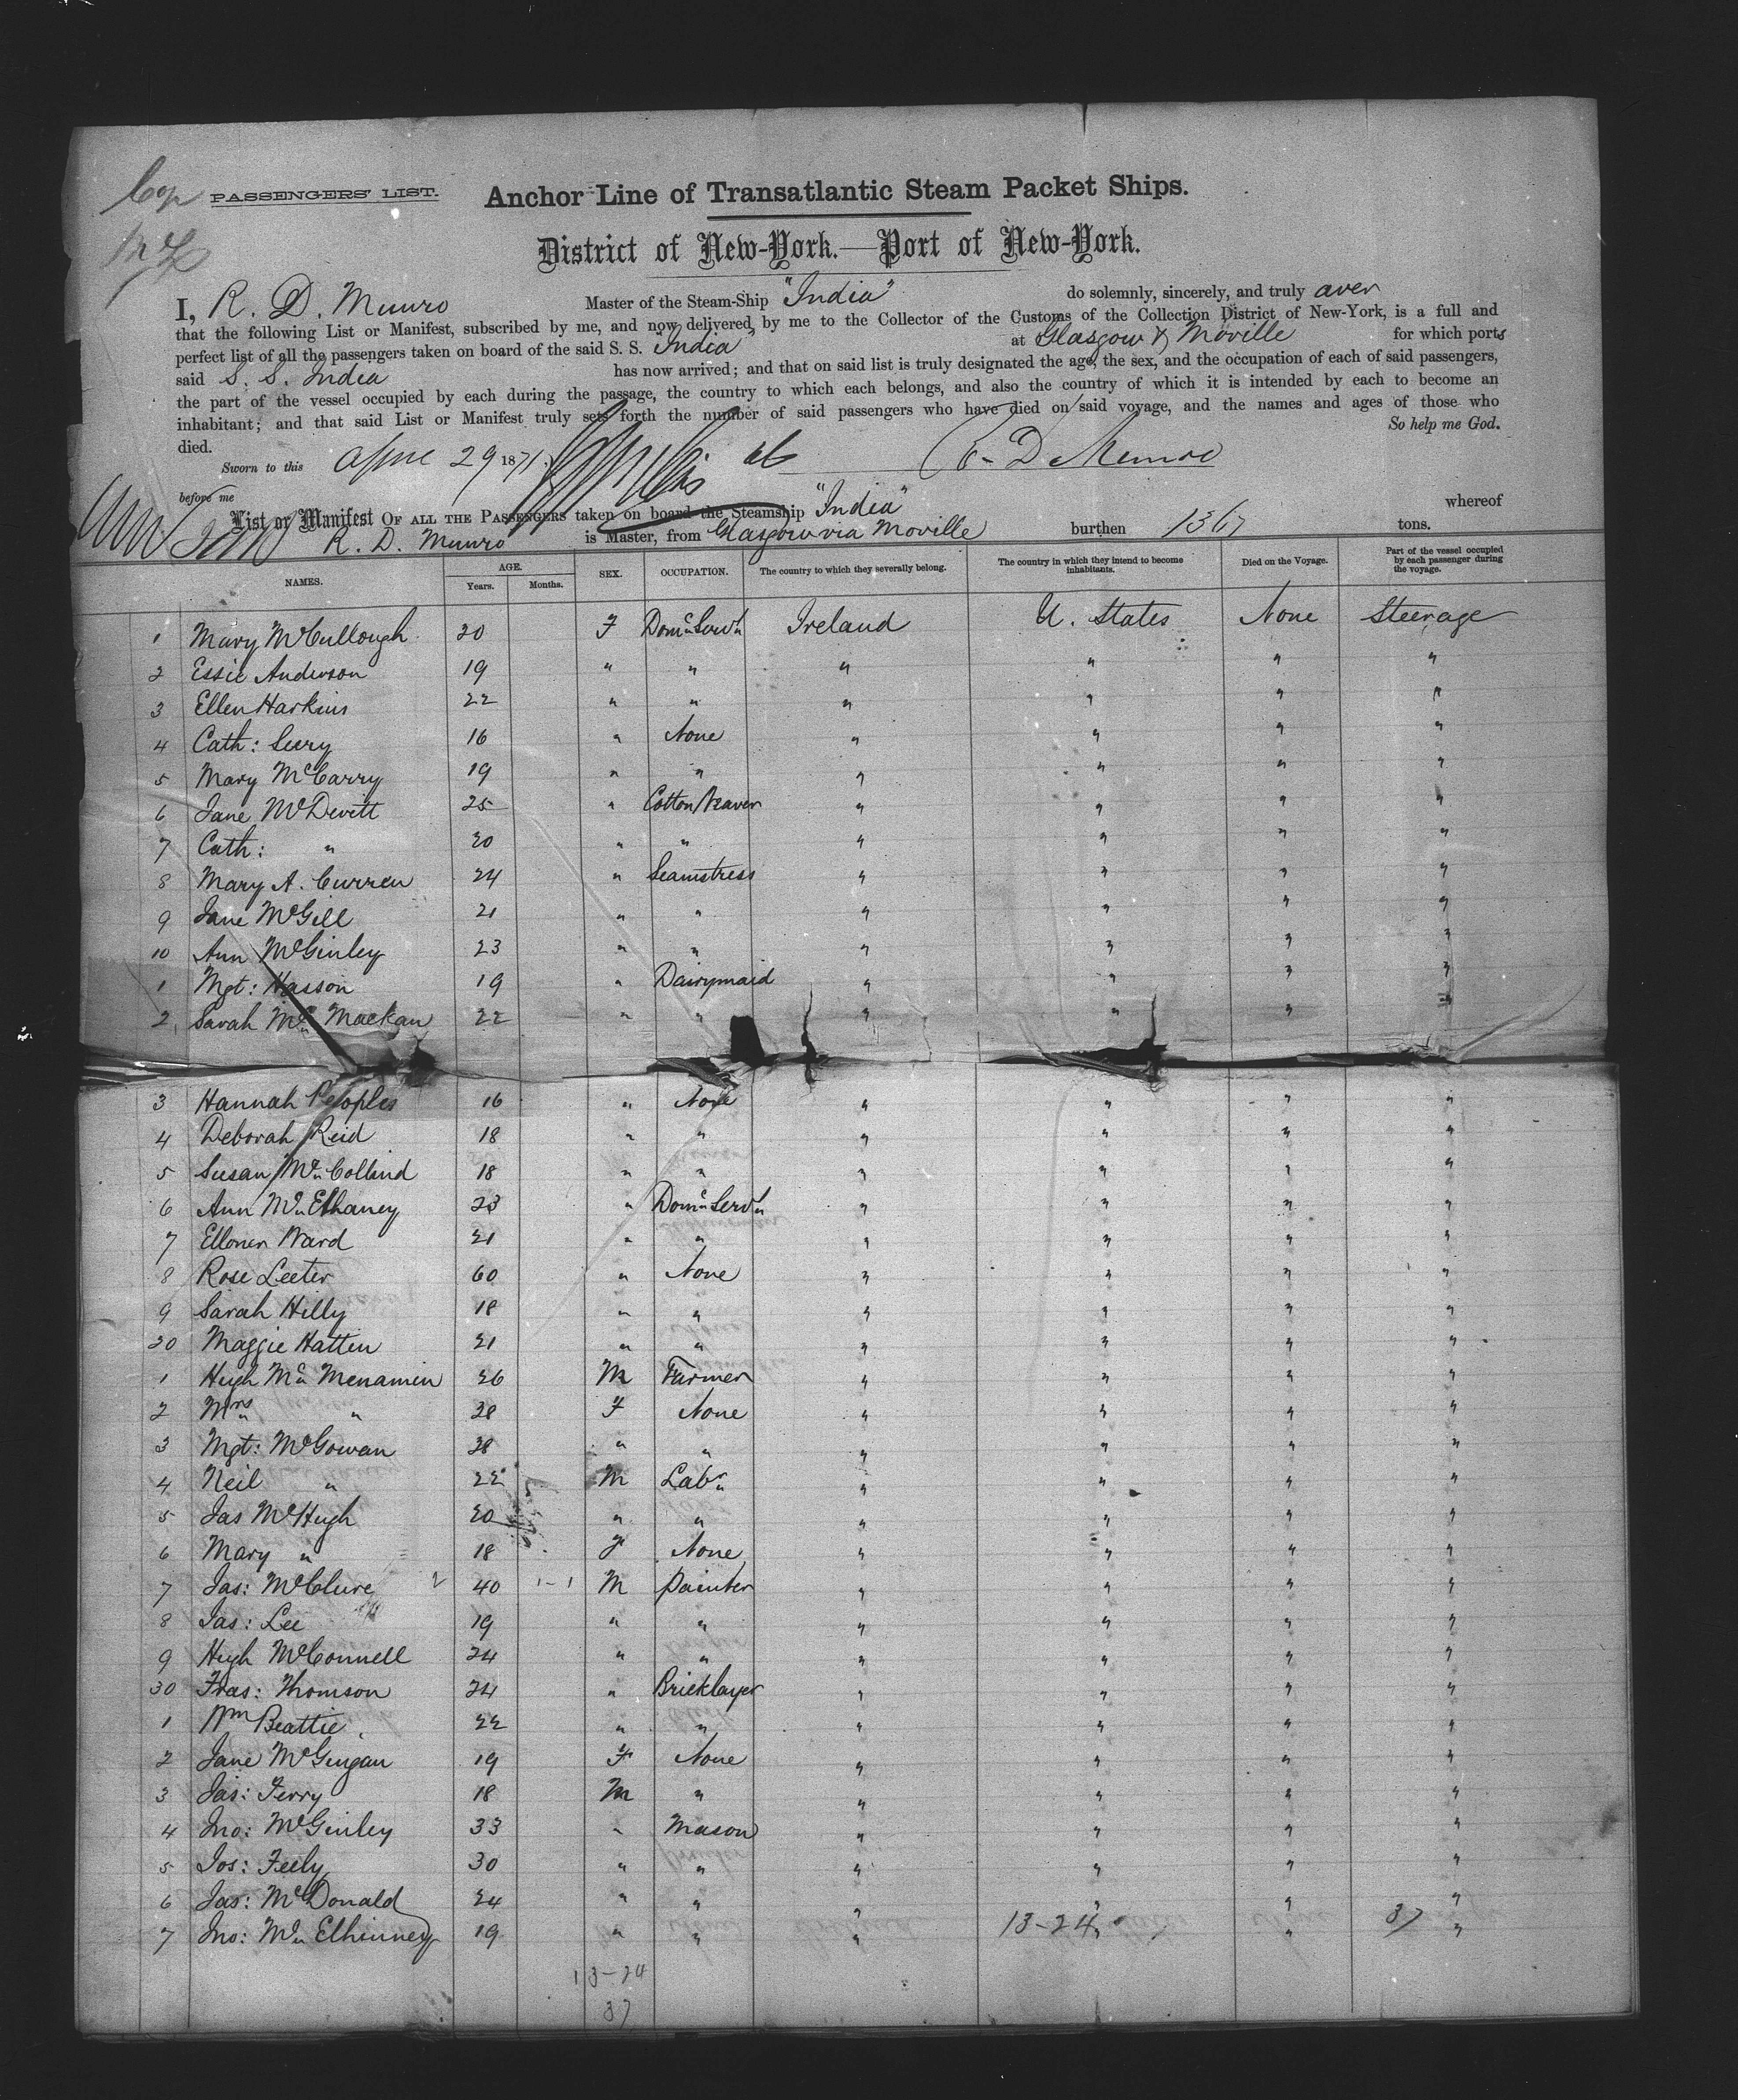 Cop PASSENGERS' LIST. Anchor Line of Transatlantic Steam Packet Ships.
District of New-York.—Port of New-York.
I, R. D. Munro Master of the Steam-Ship "India" do solemnly, sincerely, and truly aver
that the following List or Manifest, subscribed by me, and now delivered by me to the Collector of the Customs of the Collection District of New-York, is a full and
perfect list of all the passengers taken on board of the said S. S. India at Glasgow & Moville for which ports
said S. S. India has now arrived; and that on said list is truly designated the age, the sex, and the occupation of each of said passengers,
the part of the vessel occupied by each during the passage, the country to which each belongs, and also the country of which it is intended by each to become an
inhabitant; and that said List or Manifest truly sets forth the number of said passengers who have died on said voyage, and the names and ages of those who
died. So help me God.
Sworn to this April 29 1871. R. D. Munro
before me
List or Manifest OF ALL THE PASSENGERS taken on board the Steamship "India" whereof
R. D. Munro is Master, from Glasgow via Moville burthen 1367 tons.
NAMES. AGE. Years. Months. SEX. OCCUPATION. The country to which they severally belong. The country in which they intend to become inhabitants. Died on the Voyage. Part of the vessel occupied by each passenger during the voyage.
1 Mary McCullough 20 F Domc Servt Ireland U. States None Steerage
2 Essie Anderson 19 " " " " " "
3 Ellen Harkins 22 " " " " " "
4 Cath: Seery 16 " None " " " "
5 Mary McCarry 19 " " " " " "
6 Jane McDevitt 25 " Cotton Weaver " " " "
7 Cath: " 20 " " " " " "
8 Mary A. Curren 24 " Seamstress " " " "
9 Jane McGill 21 " " " " " "
10 Ann McGinley 23 " " " " " "
1 Mgt: Hasson 19 " Dairymaid " " " "
2 Sarah Mc Mackan 22 " " " " " "
3 Hannah Peoples 16 " None " " " "
4 Deborah Reid 18 " " " " " "
5 Susan Mc Collind 18 " " " " " "
6 Ann Mc Elhaney 23 " Domc Servt " " " "
7 Elloner Ward 21 " " " " " "
8 Rose Leeter 60 " None " " " "
9 Sarah Hilly 18 " " " " " "
20 Maggie Hatten 21 " " " " " "
1 Hugh Mc Menamin 26 M Farmer " " " "
2 Mrs " 28 F None " " " "
3 Mgt: McGowan 28 " " " " " "
4 Neil " 22 M Labr " " " "
5 Jas McHugh 20 " " " " " "
6 Mary " 18 F None " " " "
7 Jas: McClure 40 M Painter " " " "
8 Jas: Lee 19 " " " " " "
9 Hugh McConnell 24 " " " " " "
30 Fras: Thomson 24 " Bricklayer " " " "
1 Wm Beattie 22 " " " " " "
2 Jane McGuigan 19 F None " " " "
3 Jas: Ferry 18 M " " " " "
4 Jno: McGinley 33 " Mason " " " "
5 Jos: Feely 30 " " " " " "
6 Jas: McDonald 24 " " " " " "
7 Jno: Mc Elhinney 19 " " " 13-24 " " 37 "
13-24
37